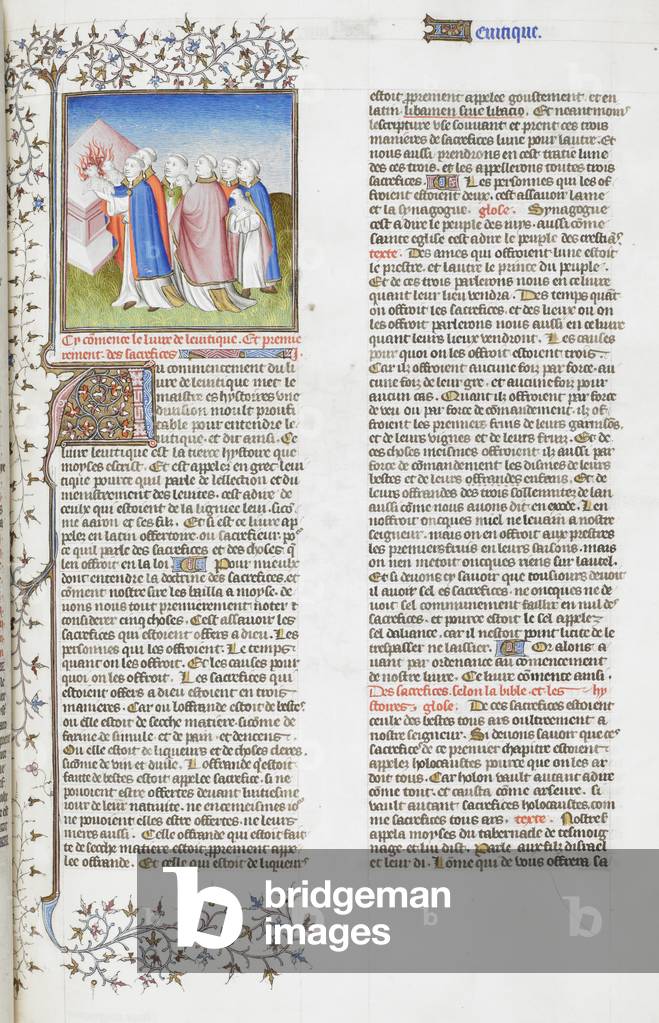 Leuitique.
Cy cōmence le liure de leuitique. Et premie
rement des sacrefices
u commencement du li
ure de leuitique met le
maistre es hystoires vne
diuision moult proufi
table pour entendre le
uitique et dit ainsi. Ce
liure leuitique est la tierce hystoire que
moyses escrist. Et est appelez en grec leui
tique pource quil parle de lellection et du
menistrement des leuites. cest adire de
ceulx qui estoient de la ligniee leui. sicō
me aaron et ses filz. Et si est ce liure ap
pelez en latin offertoire ou sacrefieur. po
ce quil parle des sacrefices et des choses q
len offroit en la loi Pour mieulx
dont entendre la doctrine des sacrefices. et
cōment nostre sire les bailla a moyse. de
uons nous tout premierement noter et
considerer cinq choses. Cest assauoir les
sacrefices qui estoient offers a dieu. Les
personnes qui les offroient. Le temps
quant on les offroit. Et les causes pour
quoi on les offroit. Les sacrefices qui
estoient offers a dieu estoient en trois
manieres. Car ou loffrande estoit de bestes
ou elle estoit de seeche matiere. sicōme de
farine de simule. et de pain. et dencens.
Ou elle estoit de liqueurs et de choses cleres.
sicōme de vin et duile. Loffrande qestoit
faite de bestes estoit appelee sacrefice. si ne
pouoient estre offertes deuant huitiesme
iour de leur natiuite. ne encemeismes io
ne pouoient elles estre offertes. ne leurs
meres aussi. Celle offrande qui estoit fai
te de seeche matiere estoit pprement appe
lee offrande. Et celle qui estoit de liqueurs
estoit pprement appelee goustement. et en
latin libamen siue libacio. Et neantmoins
lescripture vse souuant et prent ces trois
manieres de sacrefices lune pour lautre. Et
nous aussi prendrons en cest traitie lune
des ces trois. et les appellerons toutes trois
sacrefices. Les personnes qui les of
froient estoient deux. cest assauoir lame
et la synagogue. glose. Synagogue
cest a dire le peuple des iuys. aussi cōme
sainte eglise cest adire le peuple des crestiās.
texte. Des ames qui offroient lune estoit
le prestre. et lautre le prince du peuple.
Et de ces trois parlerons nous en ce liure
quant leur lieu vendra. Des temps quāt
on offroit les sacrefices. et des lieux ou on
les offroit parlerons nous aussi en ce liure
quant leurs lieux vendront. Les causes
pour quoi on les offroit estoient trois.
Car il offroient aucune foiz par force. au
cune foiz de leur gre. et aucune foiz pour
aucun cas. Quant il offroient par force
de veu ou par force de cōmandement. il of
froient les premiers fruis de leurs garnisōs.
et de leurs vignes et de leurs fruiz. Et de
ces choses meismes offroient ilz aussi par
force de cōmandement les dismes de leurs
bestes et de leurs offrandes enfans. Et de
leurs offrandes des trois sollemnitez de lan
aussi cōme nous auons dit en exode. Len
noffroit oncques miel ne leuain a nostre
seigneur. mais on en offroit aux prestres
les premiers fruis en leurs saisons. mais
on nen metoit oncques riens sur lautel.
Et si deuons cy sauoir que tousiours deuoit
il auoir sel es sacrefices. ne oncques ne de
uoit sel communement faillir en nul des
sacrefices. et pource estoit le sel appelez
sel daliance. car il nestoit point licite de le
trespasser ne laissier. Or alons a
uant par ordenance au cōmencement
de nostre liure. Ce liure cōmence ainsi.
Des sacrefices. selon la bible. et les hy
stoires. glose. De ces sacrefices estoient
ceulx des bestes tous ars oultreement a
nostre seigneur. Si deuons sauoir que ces
sacrefices de ce premier chapitre estoient
appelez holocaustes pource que on les ar
doit tous. Car holon vault autant adire
cōme tout. et causta cōme arseure. si
vault autant sacrefices holocaustes. com
me sacrefices tous ars. texte. Nostres
appela moyses du tabernacle de tesmoig
nage et lui dist. Parle aux filz disrael
et leur di. Lōme qui de vous offrera sa
b bridgeman
images